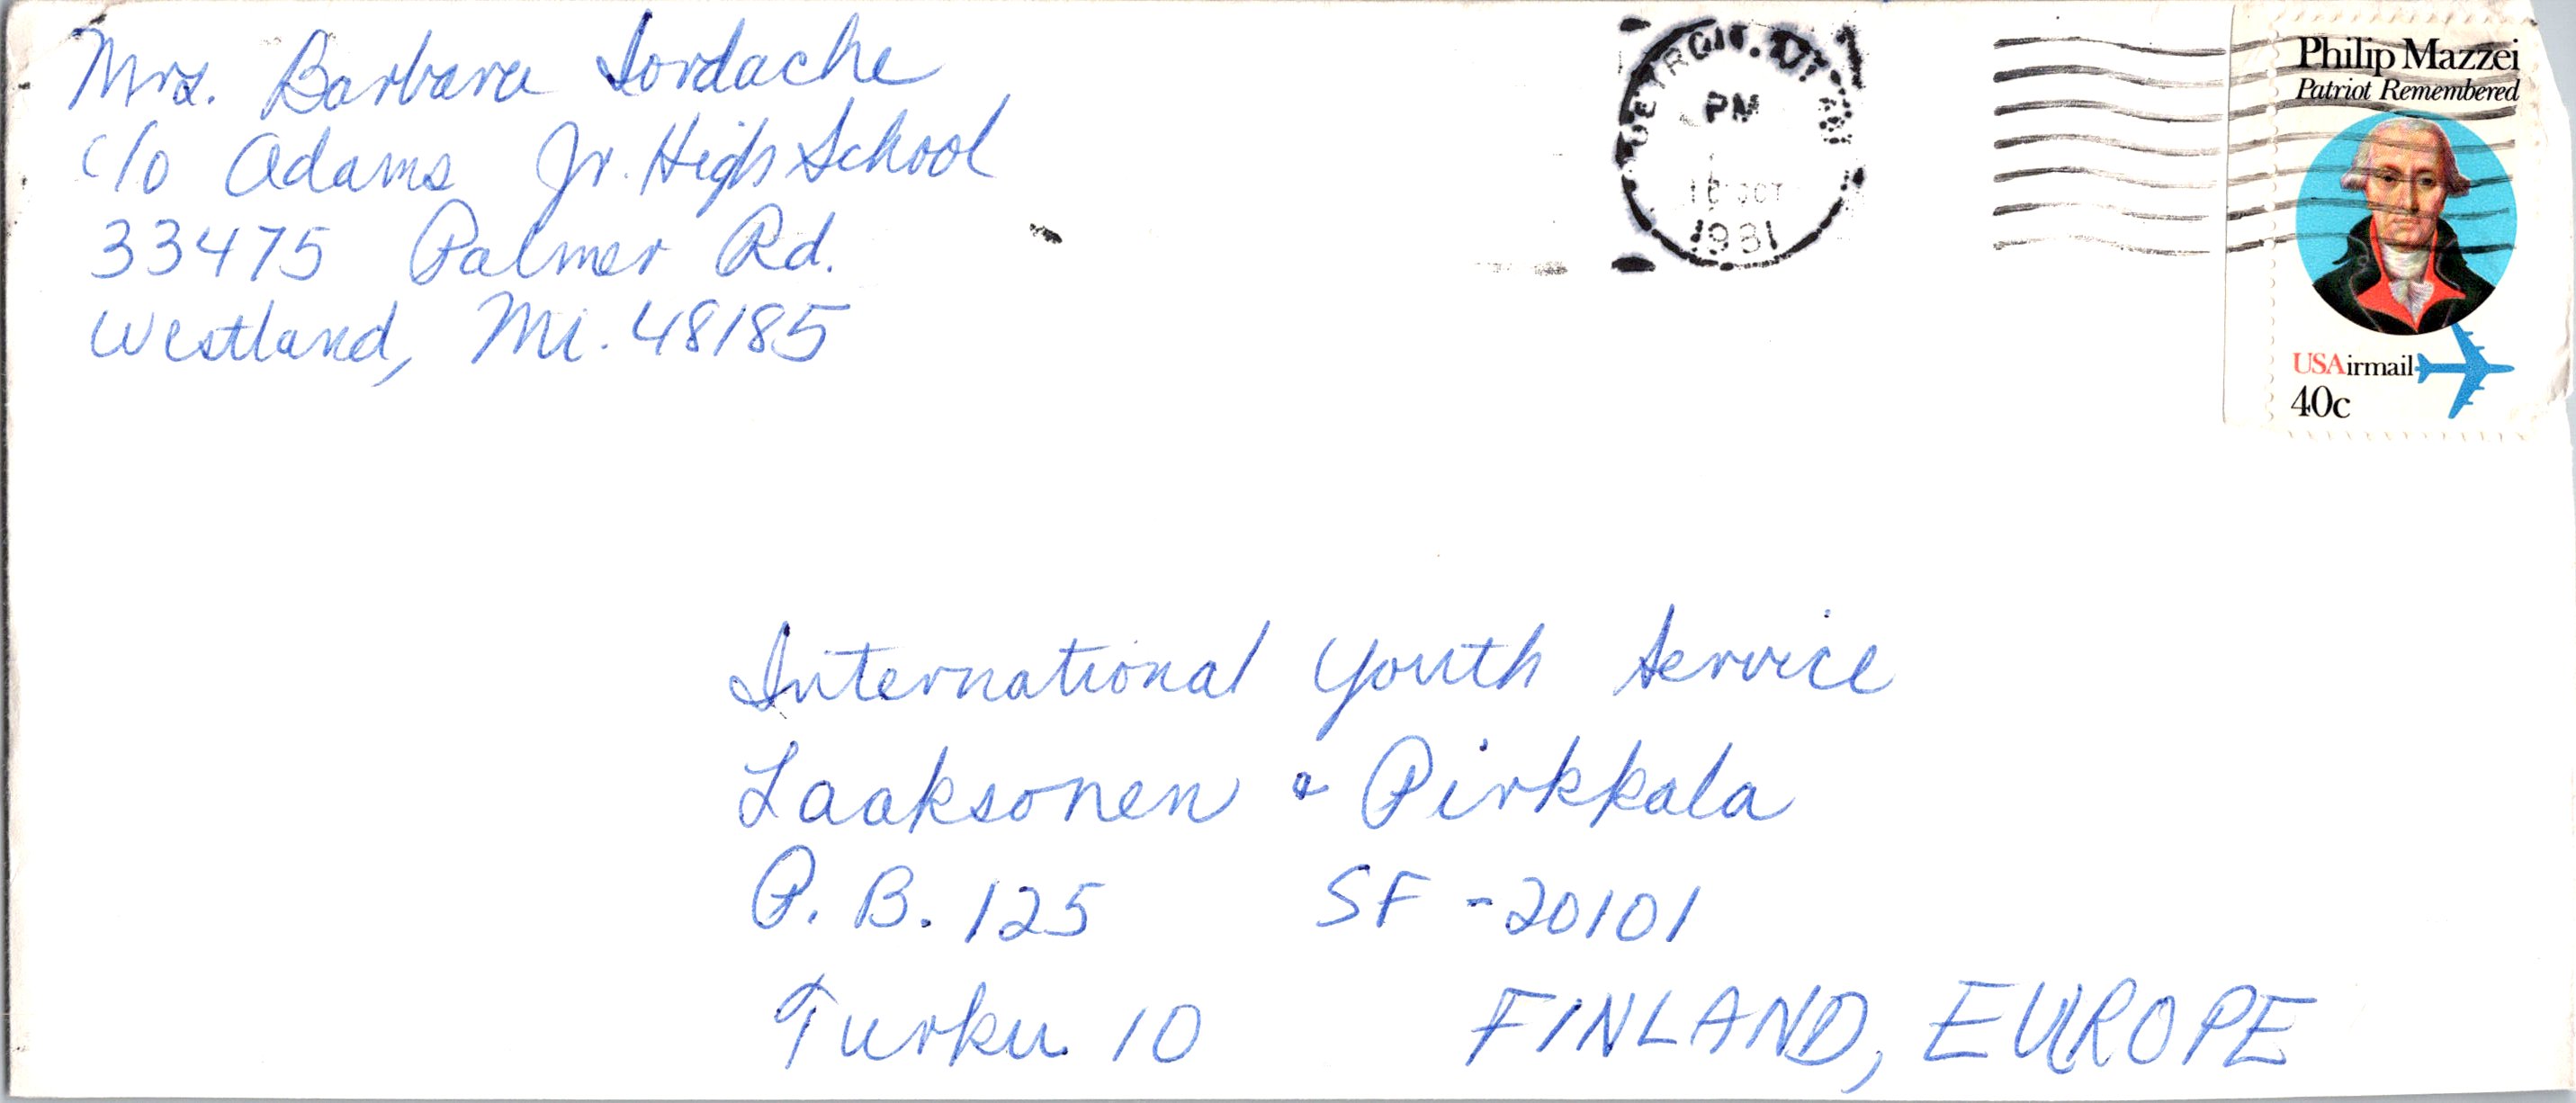 Mrs. Barbara Iordache
c/o Adams Jr. High School
33475 Palmer Rd.
Westland, Mi. 48185
DETROIT,
PM
OCT
1981
Philip Mazzei
Patriot Remembered
USAirmail
40c
International Youth Service
Laaksonen & Pirkkala
P. B. 125 SF - 20101
Turku 10 FINLAND, EUROPE